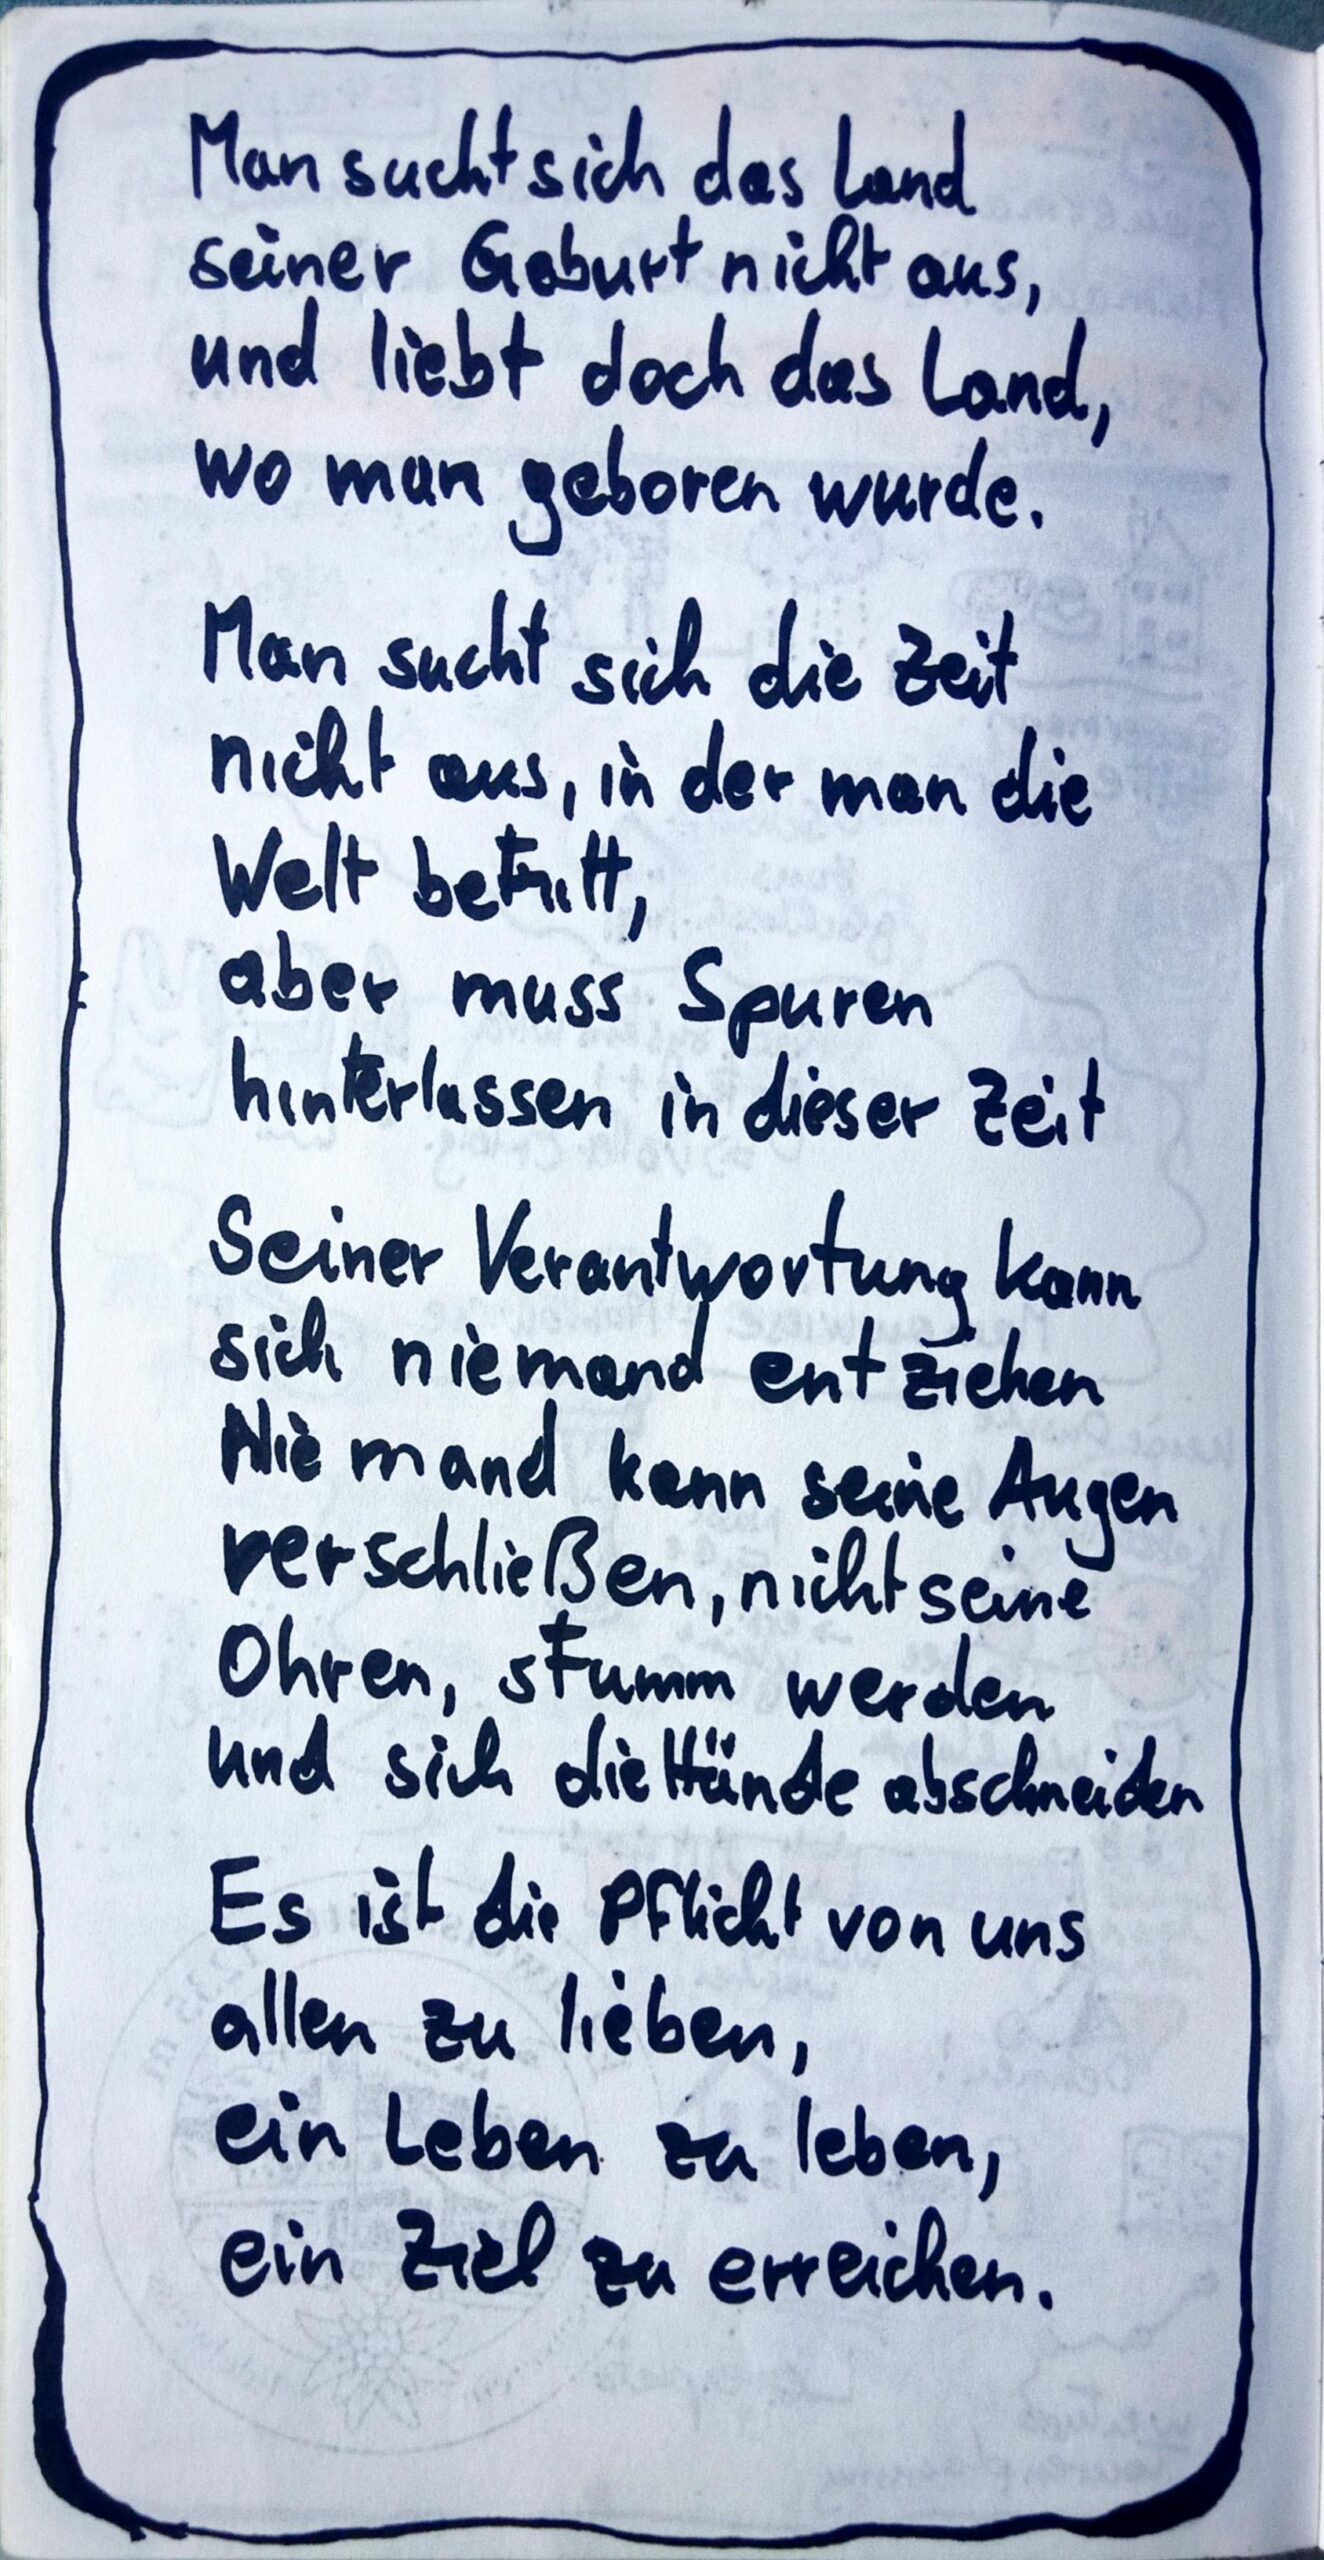 Man sucht sich das Land
seiner Geburt nicht aus,
und liebt doch das Land,
wo man geboren wurde.
Man sucht sich die Zeit
nicht aus, in der man die
Welt betritt,
aber muss Spuren
hinterlassen in dieser Zeit
Seiner Verantwortung kann
sich niemand entziehen
Niemand kann seine Augen
verschließen, nicht seine
Ohren, stumm werden
und sich die Hände abschneiden
Es ist die Pflicht von uns
allen zu lieben,
ein Leben zu leben,
ein Ziel zu erreichen.